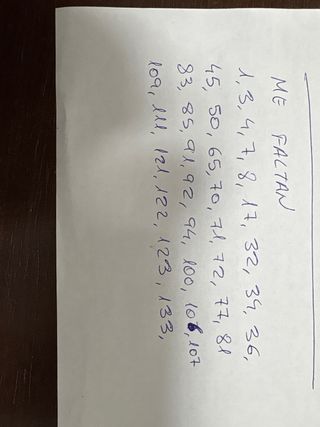 ME FALTAN
1, 3, 4, 7, 8, 17, 32, 34, 36,
45, 50, 65, 70, 71, 72, 77, 81
83, 85, 91, 92, 94, 100, 106, 107
109, 111, 121, 122, 123, 133,